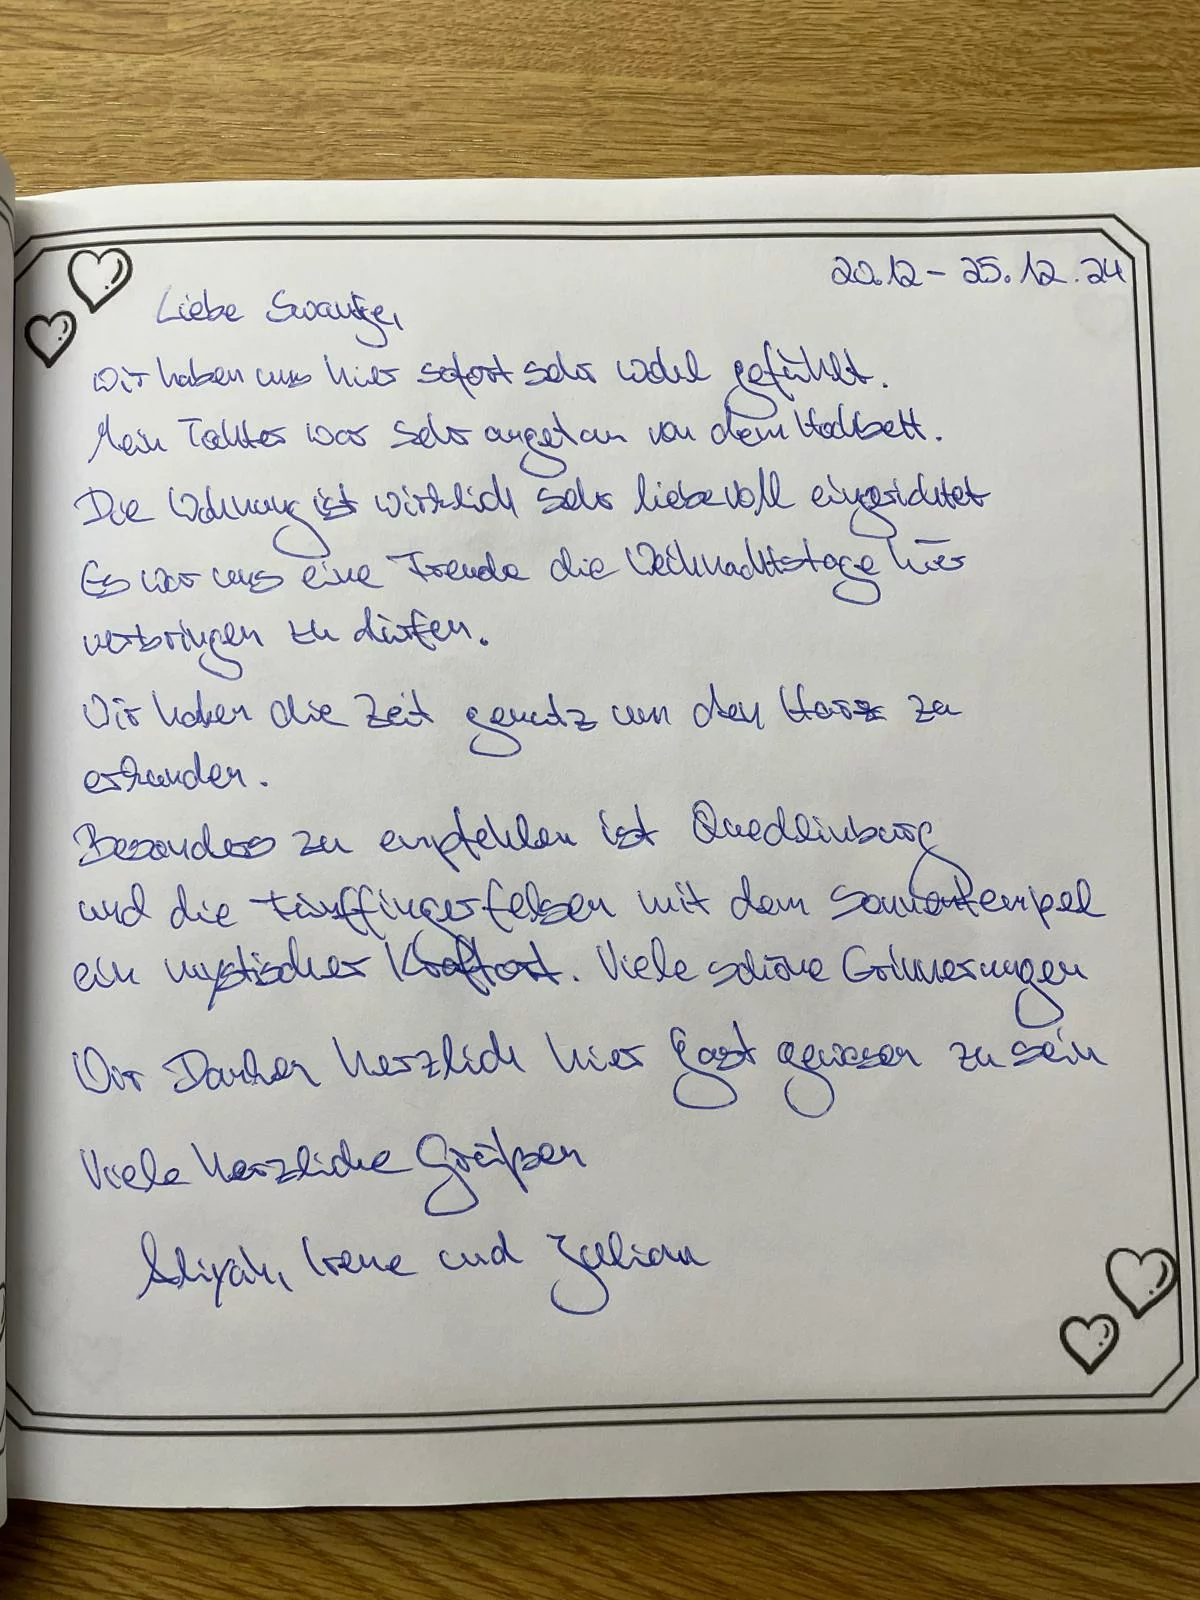 20.12 – 25.12.24
Liebe Swantje,
Wir haben uns hier sofort sehr wohl gefühlt.
Mein Tochter war sehr angetan von dem Hochbett.
Die Wohnung ist wirklich sehr liebevoll eingerichtet
Es war uns eine Freude die Weihnachtstage hier
verbringen zu dürfen.
Wir haben die Zeit genutz um den Harz zu
erkunden.
Besonders zu empfehlen ist Quedlinburg
und die Fünffingerfelsen mit dem Sonnentempel
ein mystischer Kraftort. Viele schöne Erinnerungen
Wir Danken herzlich hier Gast gewesen zu sein
Viele herzliche Grüßen
Aliyah, Irene und Julian